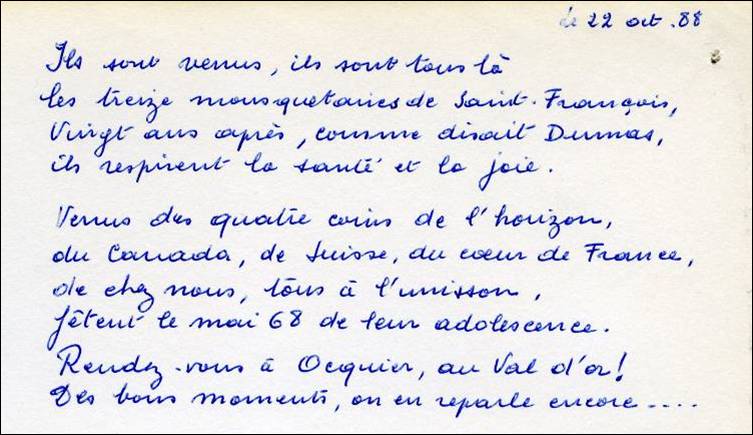 le 22 oct. 88
Ils sont venus, ils sont tous là
les treize mousquetaires de Saint-François,
Vingt ans après, comme disait Dumas,
ils respirent la santé et la joie.
Venus des quatre coins de l'horizon,
du Canada, de Suisse, du cœur de France,
de chez nous, tous à l'unisson,
fêtent le mai 68 de leur adolescence.
Rendez-vous à Ocquier, au Val d'or!
Des bons moments, on en reparle encore....